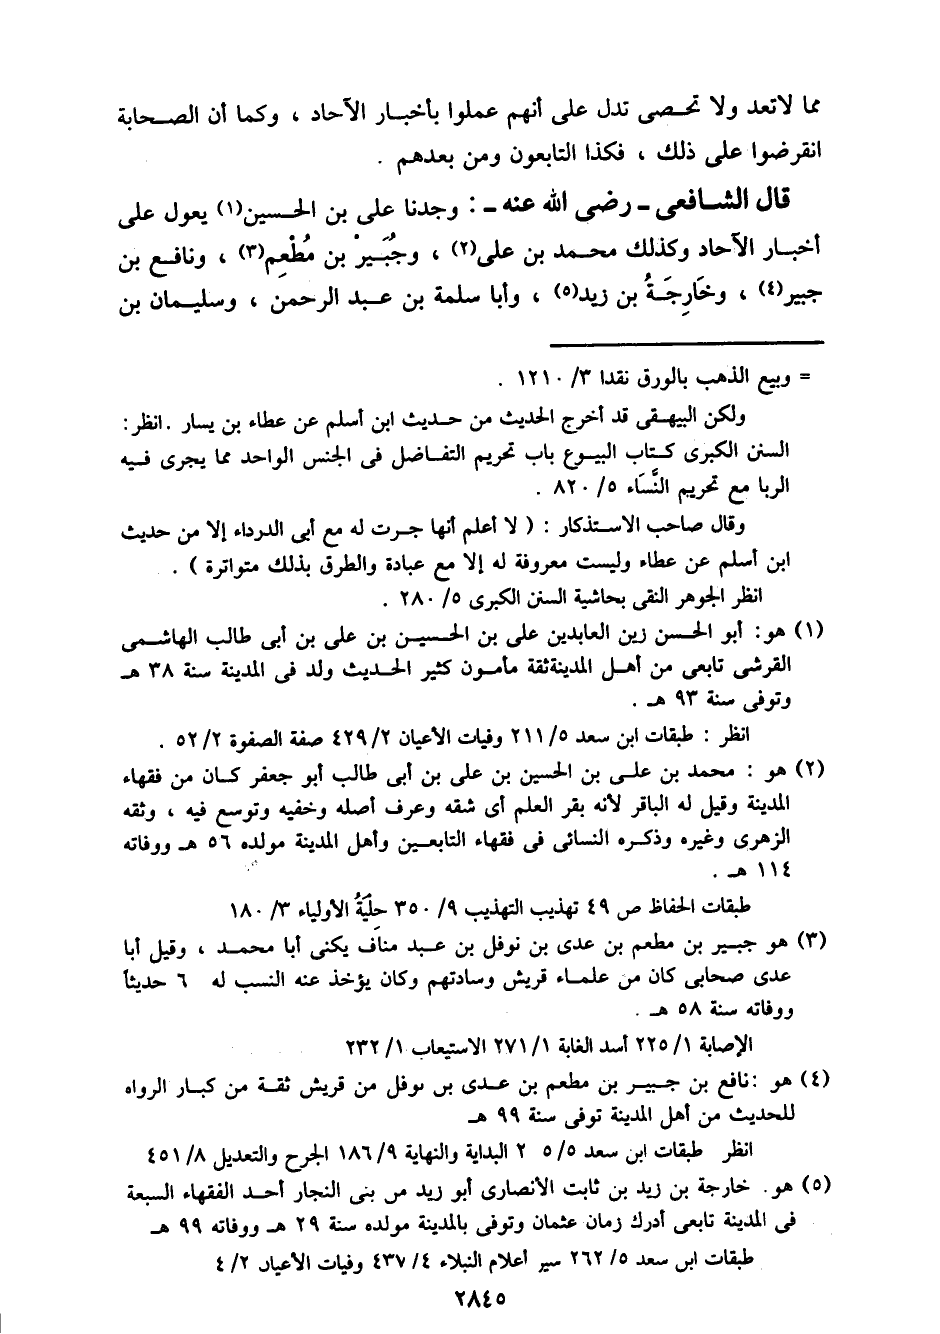 مما لاتعد ولا تحصى تدل على أنهم عملوا بأخبار الآحاد ، وكما أن الصحابة
انقرضوا على ذلك ، فكذا التابعون ومن بعدهم .
قال الشافعى ـ رضى الله عنه ـ : وجدنا على بن الحسين(١) يعول على
أخبار الآحاد وكذلك محمد بن على(٢) ، وجُبَيرْ بن مُطْعِم(٣) ، ونافع بن
جبير(٤) ، وخَارِجَةُ بن زيد(٥) ، وأبا سلمة بن عبد الرحمن ، وسليمان بن
= وبيع الذهب بالورق نقدا ٣/ ١٢١٠ .
ولكن البيهقى قد أخرج الحديث من حديث ابن أسلم عن عطاء بن يسار .انظر:
السنن الكبرى كتاب البيوع باب تحريم التفاضل فى الجنس الواحد مما يجرى فيه
الربا مع تحريم النَّسَاء ٥/ ٨٢٠ .
وقال صاحب الاستذكار : ( لا أعلم أنها جرت له مع أبى الدرداء إلا من حديث
ابن أسلم عن عطاء وليست معروفة له إلا مع عبادة والطرق بذلك متواترة ) .
انظر الجوهر النقى بحاشية السنن الكبرى ٥/ ٢٨٠ .
(١) هو: أبو الحسن زين العابدين على بن الحسين بن على بن أبى طالب الهاشمى
القرشى تابعى من أهل المدينةثقة مأمون كثير الحديث ولد فى المدينة سنة ٣٨ هـ
وتوفى سنة ٩٣ هـ .
انظر : طبقات ابن سعد ٥/ ٢١١ وفيات الأعيان ٢/ ٤٢٩ صفة الصفوة ٢/ ٥٢ .
(٢) هو : محمد بن على بن الحسين بن على بن أبى طالب أبو جعفر كان من فقهاء
المدينة وقيل له الباقر لأنه بقر العلم أى شقه وعرف أصله وخفيه وتوسع فيه ، وثقه
الزهرى وغيره وذكره النسائى فى فقهاء التابعين وأهل المدينة مولده ٥٦ هـ ووفاته
١١٤ هـ .
طبقات الحفاظ ص ٤٩ تهذيب التهذيب ٩/ ٣٥٠ حِلْيَةُ الأولياء ٣/ ١٨٠
(٣) هو جبير بن مطعم بن عدى بن نوفل بن عبد مناف يكنى أبا محمد ، وقيل أبا
عدى صحابى كان من علماء قريش وسادتهم وكان يؤخذ عنه النسب له ٦ حديثاً
ووفاته سنة ٥٨ هـ .
الإصابة ١/ ٢٢٥ أسد الغابة ١/ ٢٧١ الاستيعاب ١/ ٢٣٢
(٤) هو :نافع بن جبير بن مطعم بن عدى بن نوفل من قريش ثقة من كبار الرواه
للحديث من أهل المدينة توفى سنة ٩٩ هـ
انظر طبقات ابن سعد ٥/ ٢٠٥ البداية والنهاية ٩/ ١٨٦ الجرح والتعديل ٨/ ٤٥١
(٥) هو. خارجة بن زيد بن ثابت الأنصارى أبو زيد من بنى النجار أحد الفقهاء السبعة
فى المدينة تابعى أدرك زمان عثمان وتوفى بالمدينة مولده سنة ٢٩ هـ ووفاته ٩٩ هـ
طبقات ابن سعد ٥/ ٢٦٢ سير أعلام النبلاء ٤/ ٤٣٧ وفيات الأعيان ٢/ ٤
٢٨٤٥